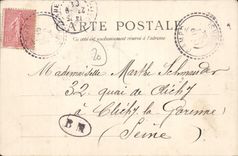 CARTE POSTALE
Ce côté est exclusivement réservé à l'adresse
20
Mademoiselle Marthe Schmeider
32 quai de Clichy
à Clichy la Garenne
(Seine)
BM